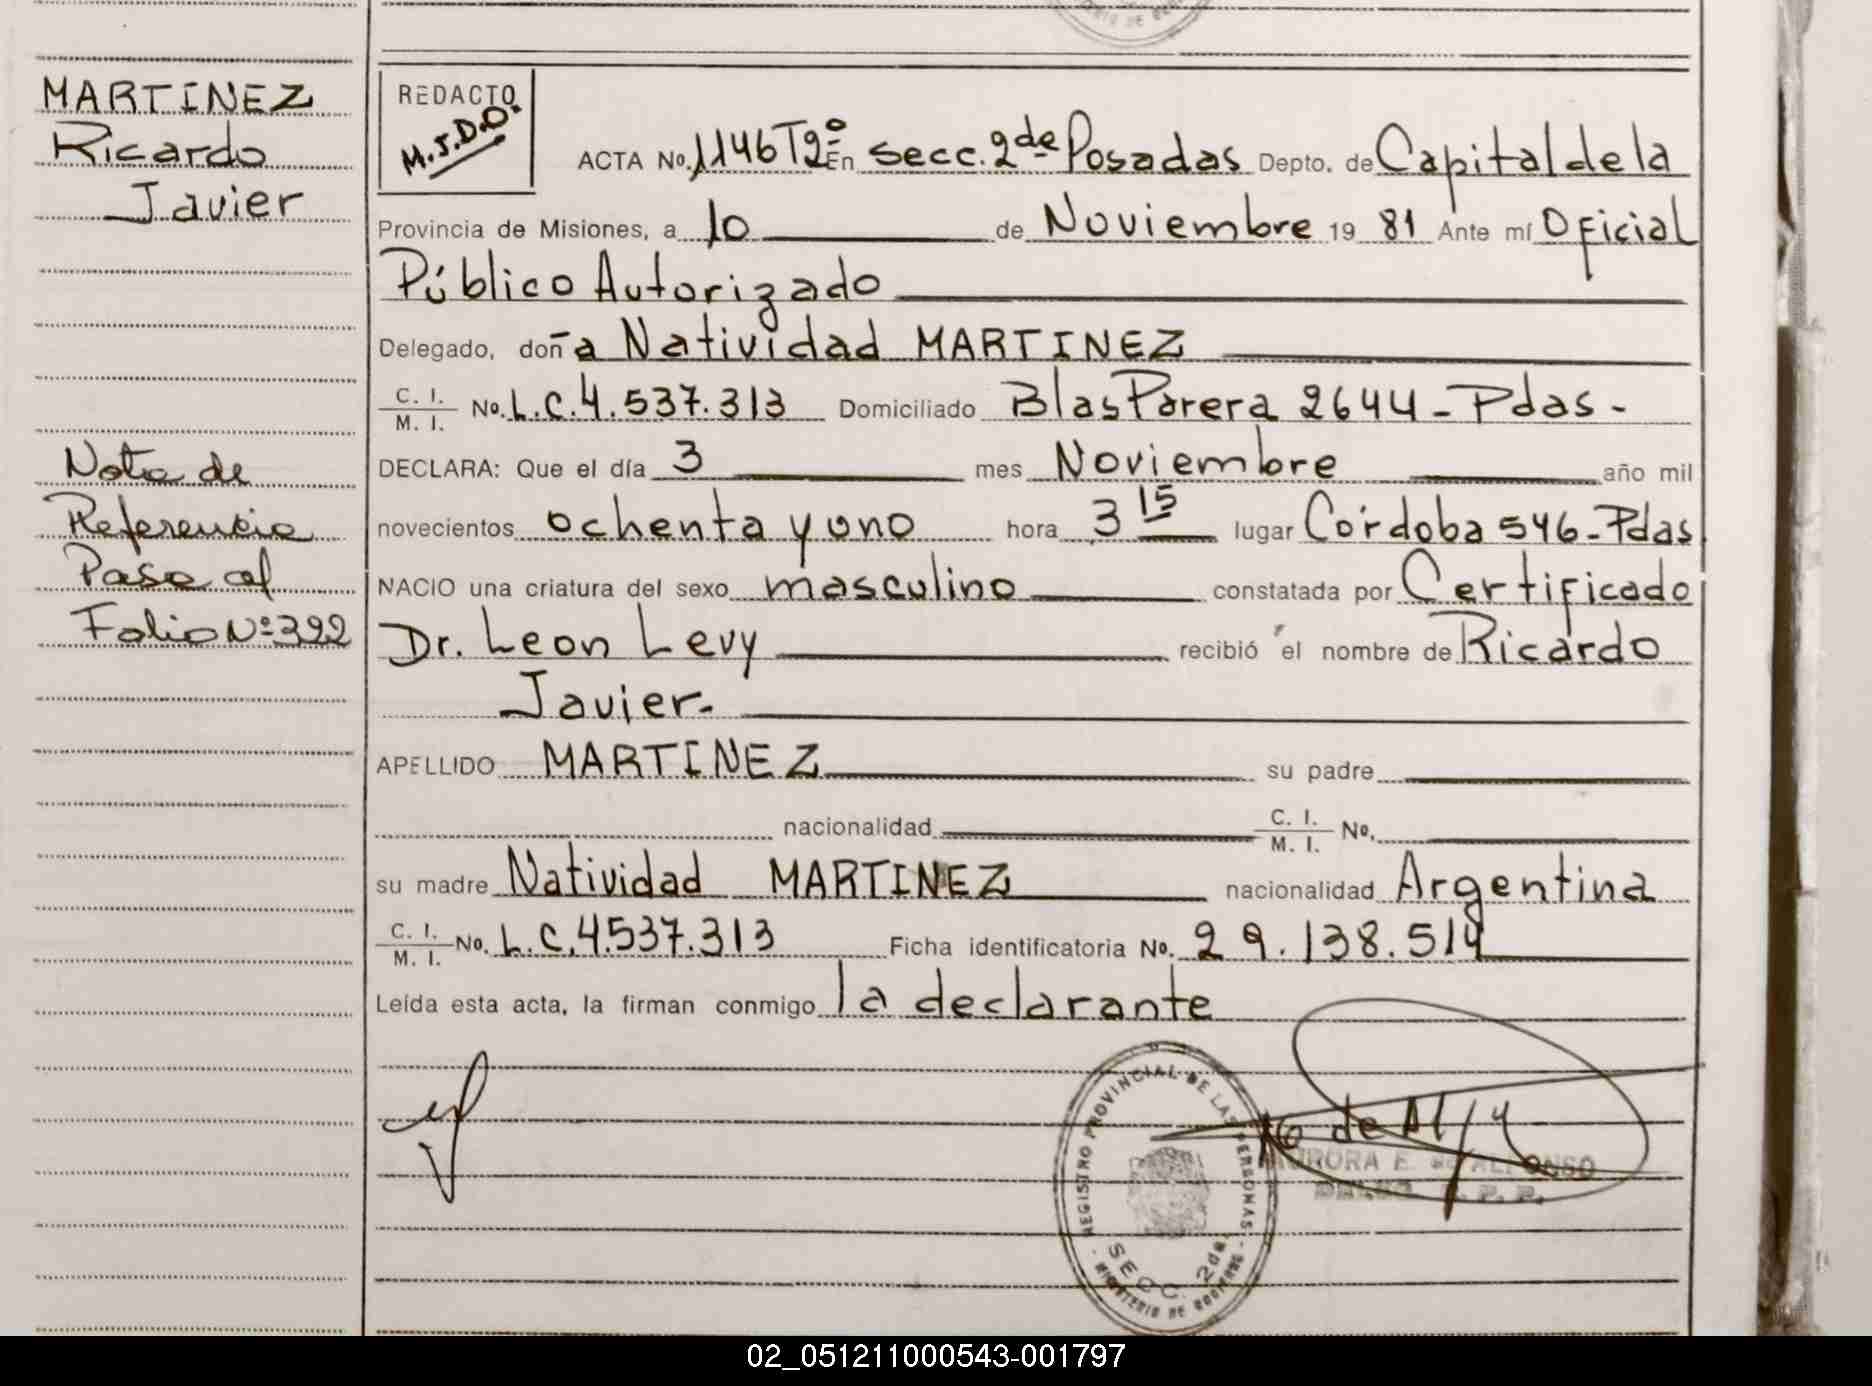 MINISTERIO DE GOBIERNO
MARTINEZ
Ricardo
Javier
Nota de
Referencia
Pasa al
Folio Nº 392
REDACTO
M.J.D.O.
ACTA No. 1146 T2º En secc. 2da de Posadas Depto. de Capital de la
Provincia de Misiones, a 10 de Noviembre 19 81 Ante mí Oficial
Público Autorizado
Delegado, doña Natividad MARTINEZ
C. I. M. I. No. L.C. 4.537.313 Domiciliado Blas Parera 2644 - Pdas -
DECLARA: Que el día 3 mes Noviembre año mil
novecientos ochenta y uno hora 3 15 lugar Córdoba 546 - Pdas
NACIO una criatura del sexo masculino constatada por Certificado
Dr. Leon Levy recibió el nombre de Ricardo
Javier.
APELLIDO MARTINEZ su padre
nacionalidad C. I. M. I. No.
su madre Natividad MARTINEZ nacionalidad Argentina
C. I. M. I. No. L.C. 4.537.313 Ficha identificatoria No. 29.138.514
Leída esta acta, la firman conmigo la declarante
REGISTRO PROVINCIAL DE LAS PERSONAS
SECC. 2da.
MINISTERIO DE GOBIERNO
AURORA E. de ALFONSO
02_051211000543-001797